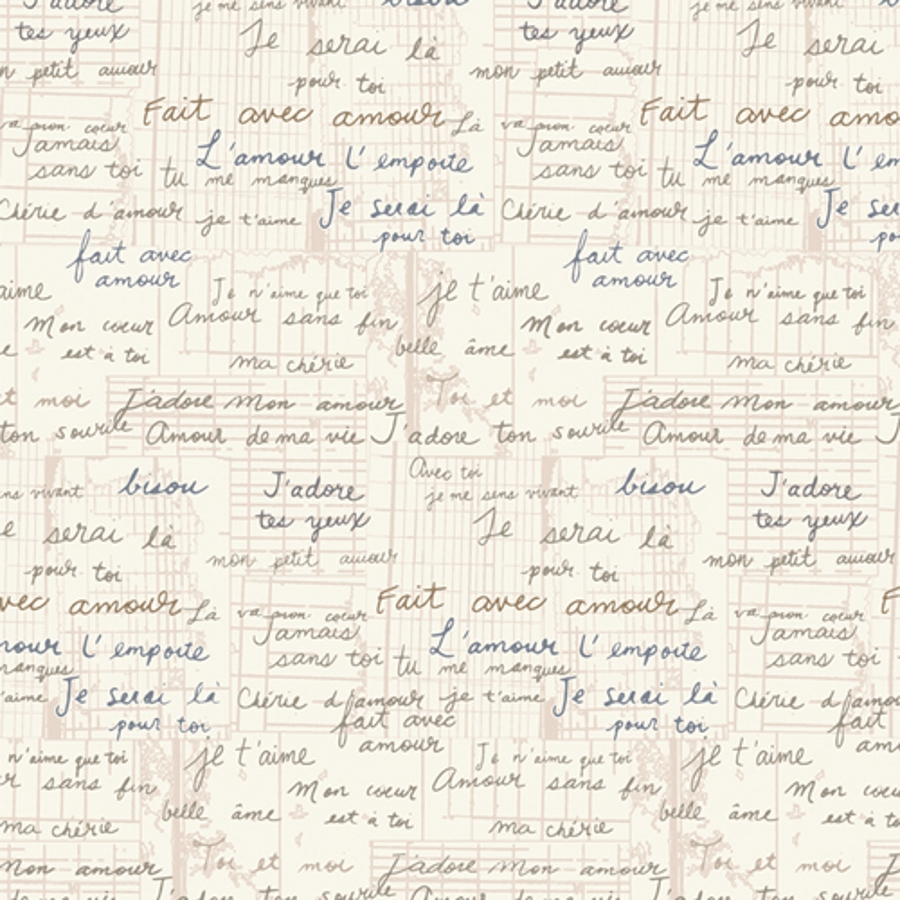 J'adore
je me sens vivant
bisou
J'adore
je me sens vivant
tes yeux
Je serai là
tes yeux
Je serai
mon petit amour
pour toi
mon petit amour
pour toi
Fait avec amour
Fait avec
Là va mon coeur
Jamais
L'amour l'emporte
Là va mon coeur
Jamais
L'amour
sans toi
tu me manques
sans toi
tu me manques
Chérie d'amour
je t'aime
Je serai là
pour toi
Chérie d'amour
je t'aime
Je
fait avec
amour
fait avec
amour
t'aime
Je n'aime que toi
je t'aime
Je n'aime que toi
Mon coeur
Amour sans fin
Mon coeur
Amour sans fin
est à toi
ma chérie
belle âme
est à toi
ma chérie
et moi
J'adore mon amour
Toi et moi
J'adore mon amour
ton sourire
Amour de ma vie
J'adore ton sourire
Amour de ma vie
Avec toi
vivant
bisou
J'adore
je me sens vivant
bisou
J'adore
tes yeux
tes yeux
serai là
Je serai là
pour toi
mon petit amour
pour toi
mon petit amour
avec amour
Fait avec amour
Là va mon coeur
Jamais
Là va mon coeur
Jamais
l'emporte
L'amour l'emporte
sans toi
manques
sans toi
tu me manques
t'aime
Je serai là
pour toi
Chérie d'amour
je t'aime
Je serai là
pour toi
Chérie
fait avec
amour
fait
n'aime que toi
je t'aime
Je n'aime que toi
je t'aime
sans fin
Mon coeur
Amour sans fin
Mon coeur
ma chérie
belle âme
est à toi
ma chérie
belle âme
est à toi
Mon amour
Toi et moi
J'adore mon amour
Toi et moi
J'adore
de ma vie
J'adore ton sourire
Amour de ma vie
J'adore ton sourire